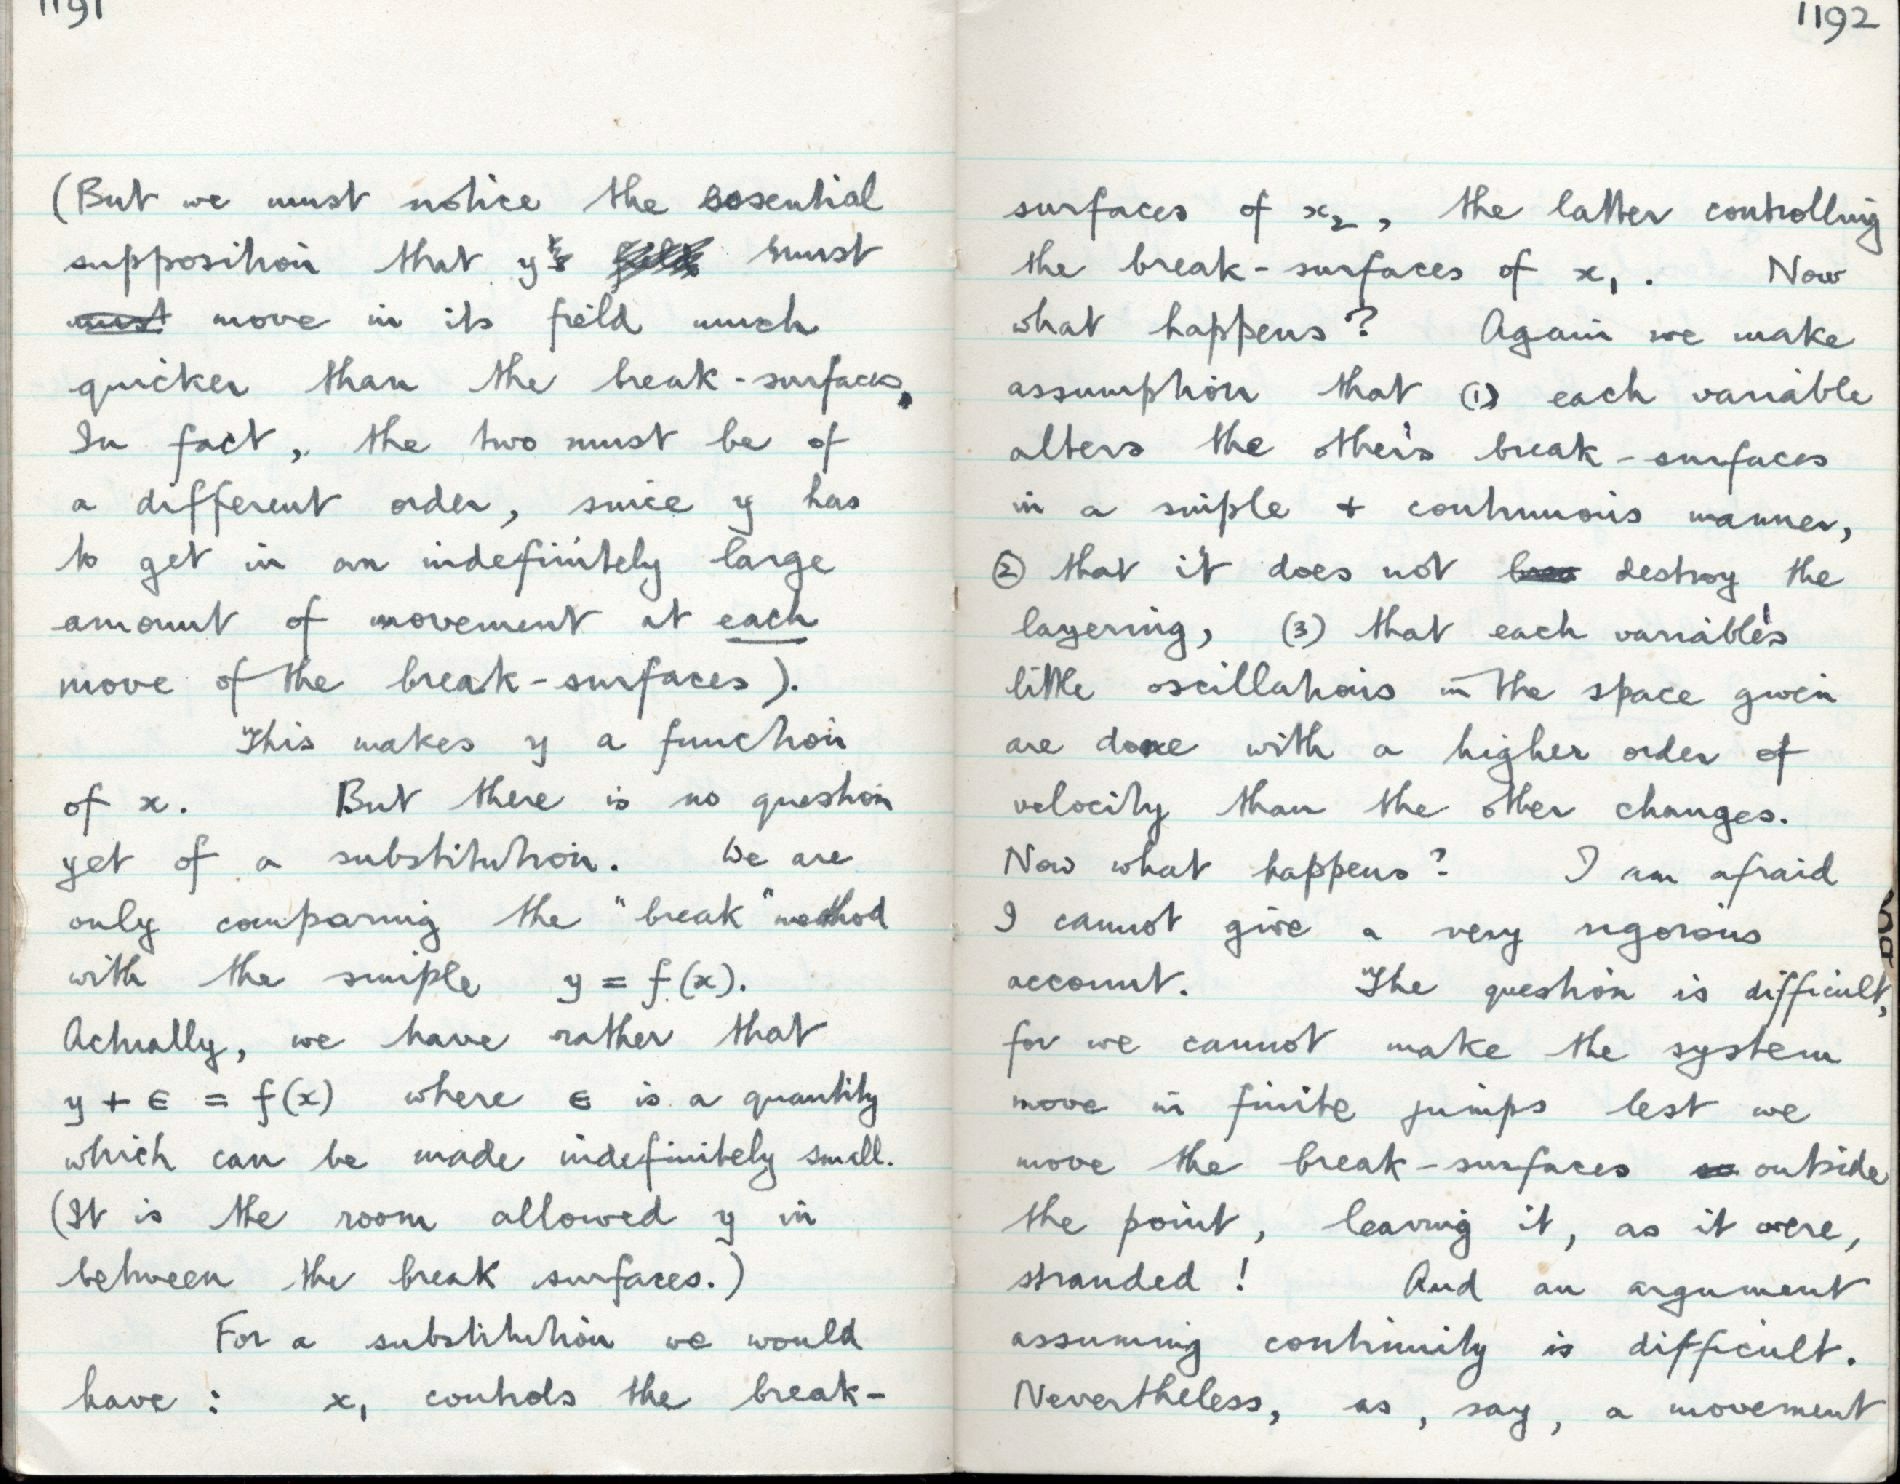 1191
(But we must notice the essential
supposition that y's field must
must move in its field much
quicker than the break-surfaces.
In fact, the two must be of
a different order, since y has
to get in an indefinitely large
amount of movement at each
move of the break-surfaces).
This makes y a function
of x. But there is no question
yet of a substitution. We are
only comparing the "break" method
with the simple y = f(x).
Actually, we have rather that
y + ϵ = f(x) where ϵ is a quantity
which can be made indefinitely small.
(It is the room allowed y in
between the break surfaces.)
For a substitution we would
have : x₁ controls the break-
1192
surfaces of x₂, the latter controlling
the break-surfaces of x₁. Now
what happens? Again we make
assumption that (1) each variable
alters the other's break-surfaces
in a simple + continuous manner,
② that it does not destroy the
layering, (3) that each variable's
little oscillations in the space given
are done with a higher order of
velocity than the other changes.
Now what happens? I am afraid
I cannot give a very rigorous
account. The question is difficult,
for we cannot make the system
move in finite jumps lest we
move the break-surfaces so outside
the point, leaving it, as it were,
stranded! And an argument
assuming continuity is difficult.
Nevertheless, as, say, a movement